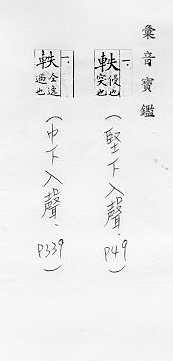 彙音寶鑑
一·
軼 侵也突也
(堅下入聲. P49)
一·
軼 全迭過也
(巾下入聲. P339)